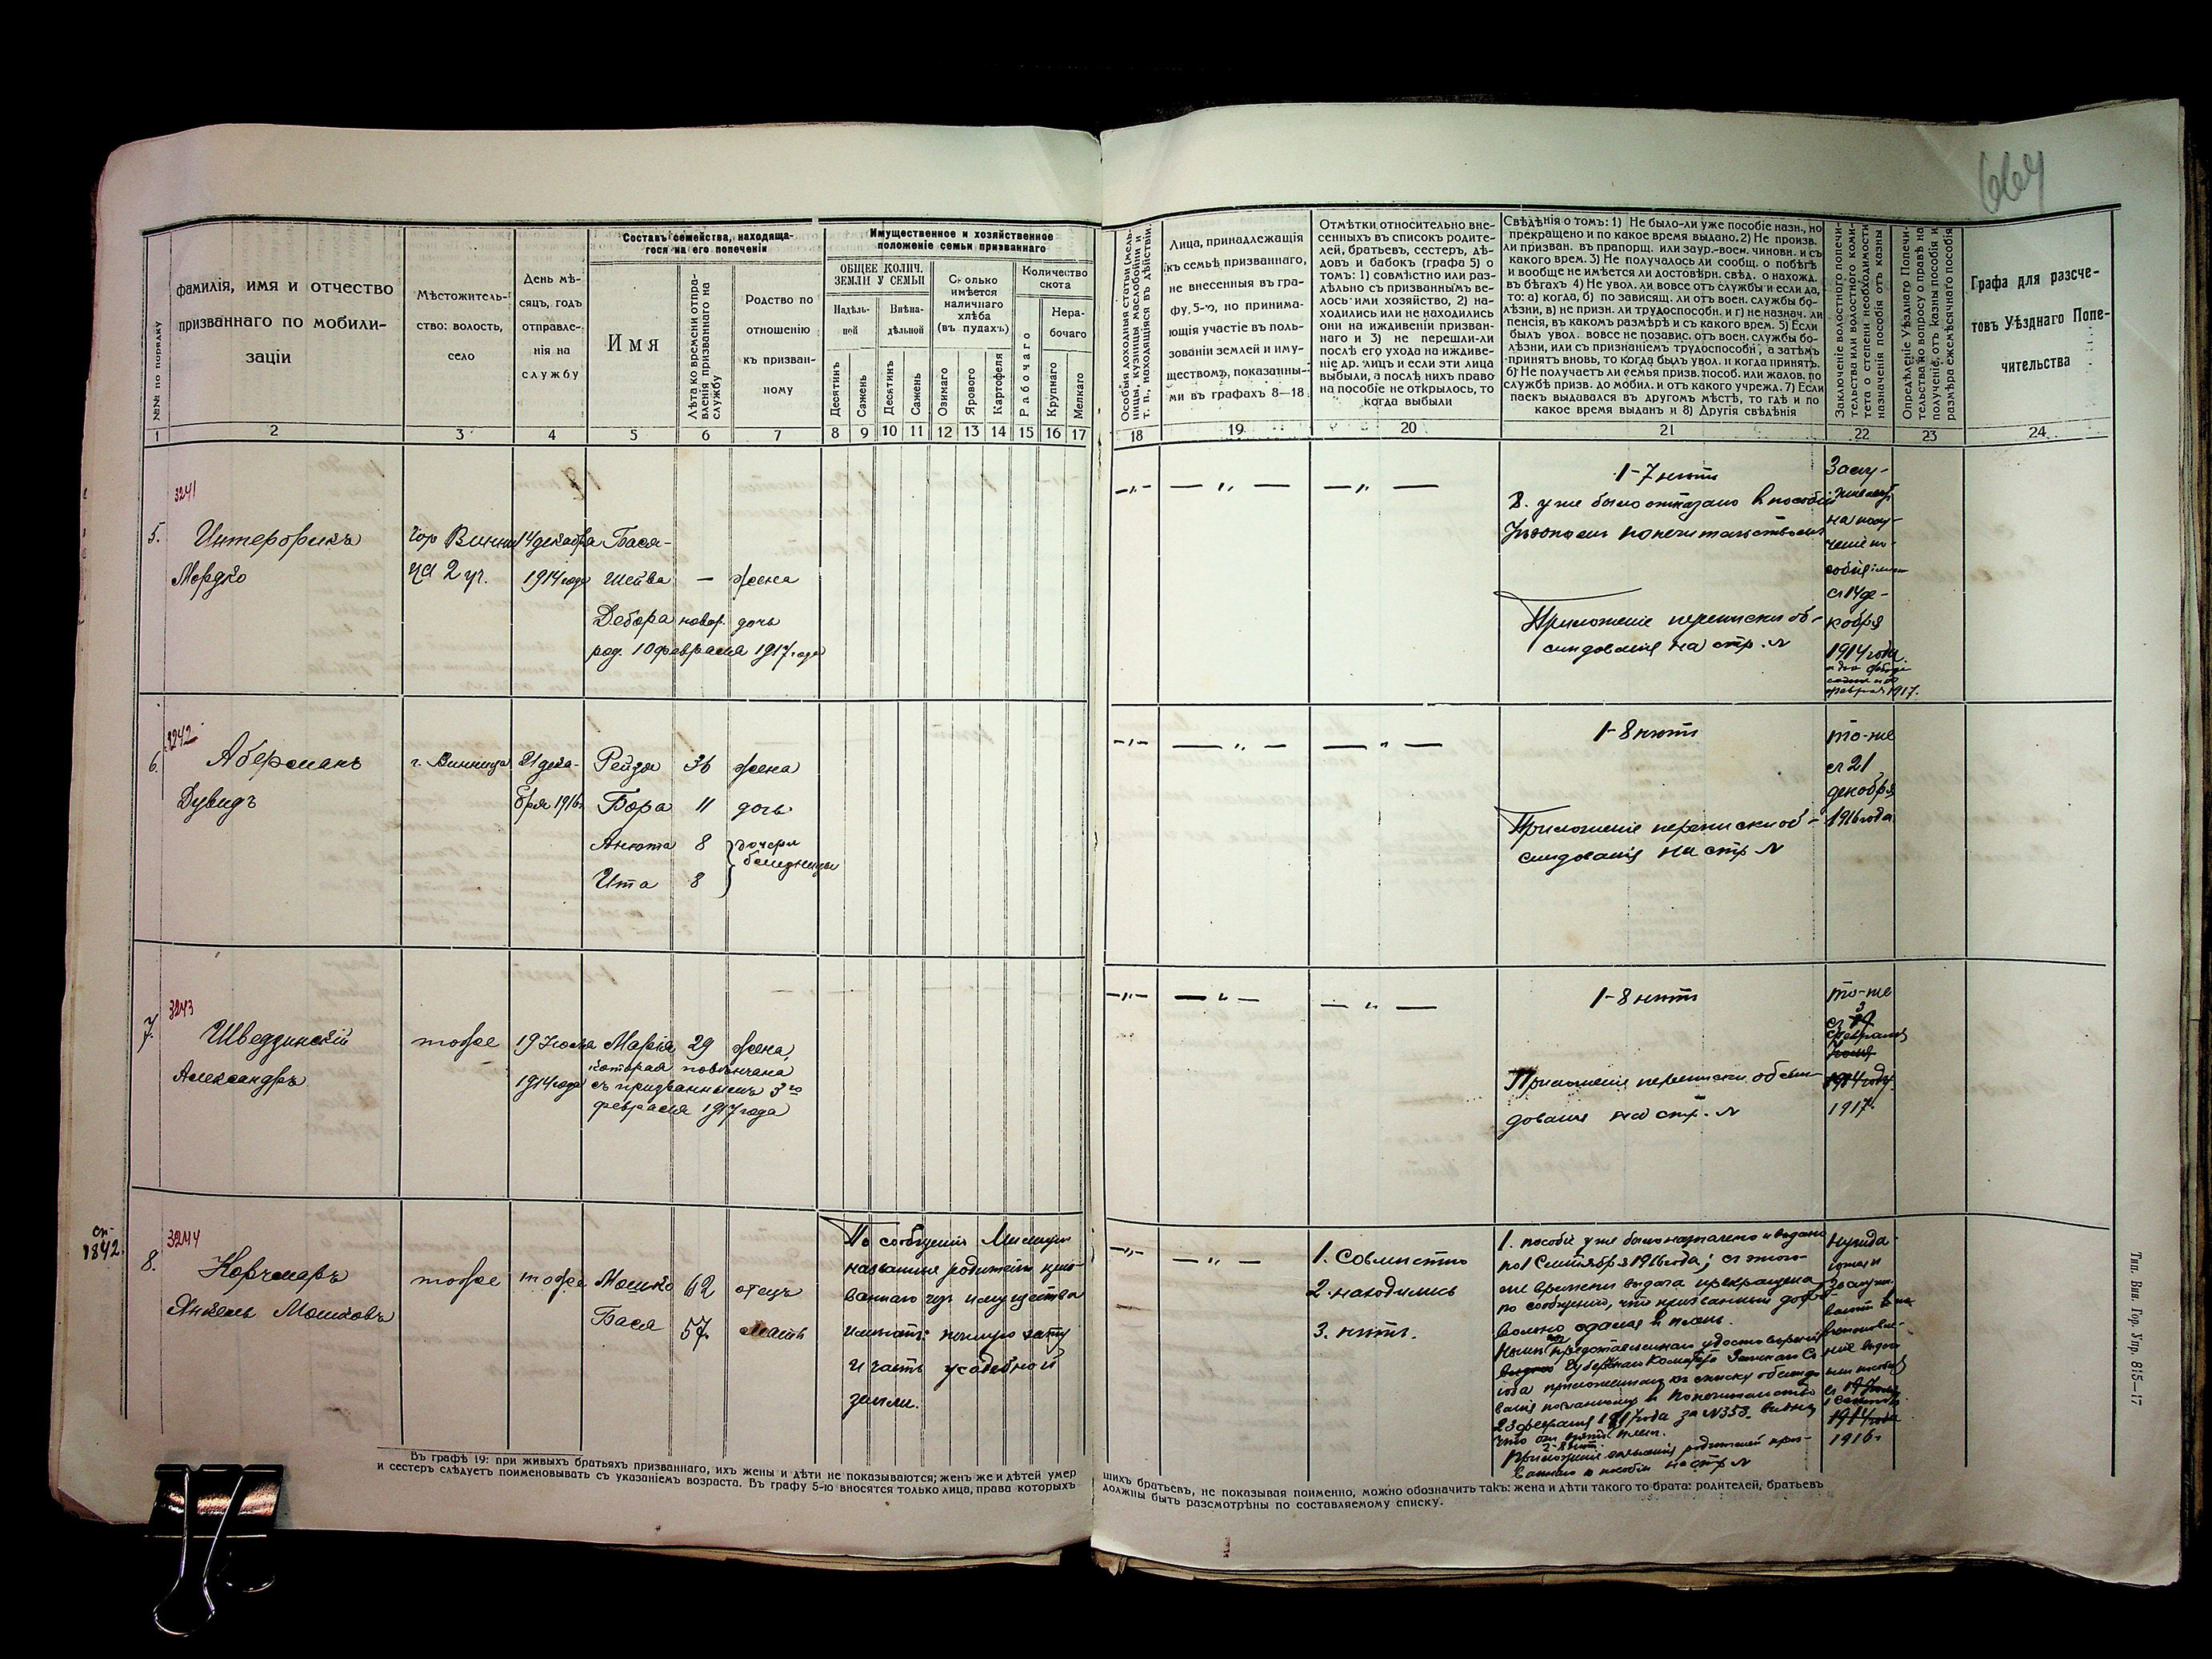 664
фамилія, имя и отчество
призваннаго по мобили-
заціи
№№ по порядку
Мѣстожитель-
ство: волость,
село
День мѣ-
сяцъ, годъ
отправле-
нія на
службу
Составъ семейства, находяща-
гося на его попеченіи
Имя
Лѣта ко времени отпра-
вленія призваннаго на
службу
Родство по
отношенію
къ призван-
ному
Имущественное и хозяйственное
положеніе семьи призваннаго
ОБЩЕЕ КОЛИЧ.
ЗЕМЛИ У СЕМЬИ
Надѣль-
ной
Внѣна-
дѣльной
Десятинъ
Сажень
Десятинъ
Сажень
Сколько
имѣется
наличнаго
хлѣба
(въ пудахъ)
Озимаго
Ярового
Картофеля
Количество
скота
Рабочаго
Нера-
бочаго
Крупнаго
Мелкаго
1 2 3 4 5 6 7 8 9 10 11 12 13 14 15 16 17
Особыя доходныя статьи (мель-
ницы, кузницы, маслобойни и
т. п., находящіяся въ дѣйствіи.
Лица, принадлежащія
къ семьѣ призваннаго,
не внесенныя въ гра-
фу, 5-ю, но принима-
ющія участіе въ поль-
зованіи землей и иму-
ществомъ, показанны-
ми въ графахъ 8—18
Отмѣтки относительно вне-
сенныхъ въ списокъ родите-
лей, братьевъ, сестеръ, дѣ-
довъ и бабокъ (графа 5) о
томъ: 1) совмѣстно или раз-
дѣльно съ призваннымъ ве-
лось ими хозяйство, 2) на-
ходились или не находились
они на иждивеніи призван-
наго и 3) не перешли-ли
послѣ его ухода на иждиве-
ніе др. лицъ и если эти лица
выбыли, а послѣ нихъ право
на пособіе не открылось, то
когда выбыли
Свѣдѣнія о томъ: 1) Не было-ли уже пособіе назн., но
прекращено и по какое время выдано. 2) Не произв.
ли призван. въ прапорщ. или заур.-воен. чиновн. и съ
какого врем. 3) Не получалось ли сообщ. о побѣгѣ
и вообще не имѣется ли достовѣрн. свѣд. о нахожд.
въ бѣгахъ 4) Не увол. ли вовсе отъ службы и если да,
то: а) когда, б) по зависящ. ли отъ воен. службы бо-
лѣзни, в) не призн. ли трудоспособн. и г) не назнач. ли
пенсія, въ какомъ размѣрѣ и съ какого врем. 5) Если
былъ увол. вовсе не позавис. отъ воен. службы бо-
лѣзни, или съ признаніемъ трудоспособн., а затѣмъ
принятъ вновь, то когда былъ увол. и когда принятъ.
6) Не получаетъ ли семья призв. пособ. или жалов. по
службѣ призв. до мобил. и отъ какого учрежд. 7) Если
паекъ выдавался въ другомъ мѣстѣ, то гдѣ и по
какое время выданъ и 8) Другія свѣдѣнія
Заключеніе волостного попечи-
тельства или волостного коми-
тета о степени необходимости
назначенія пособія отъ казны
Опредѣленіе Уѣзднаго Попечи-
тельства по вопросу о правѣ на
полученіе, отъ казны пособія и
размѣра ежемѣсячнаго пособія
Графа для разсче-
товъ Уѣзднаго Попе-
чительства
18 19 20 21 22 23 24
3241
5.
Мордко
гор Винни-
ца 2 уч.
14 декабря
1914 года
Бася-
Шейва — жена
Дебора новор. дочь
род. 10 февраля 1917 года
1-7 нѣтъ
8. уже было отказано въ пособіи
Уѣзднымъ попечительствомъ
Приложеніе переписки об-
слѣдованія на стр. №
Заслу-
на полу-
ченіе по-
собія
съ 14 де-
кабря
1914 года
февраля 1917.
3242
6.
Аберманъ
Дувидъ
г. Винница
21 дека-
бря 1916 г.
Рейзя 36 жена
Бора 11 дочь
Анюта 8 дочери
близницы
Ита 8
1-8 нѣтъ
Приложеніе переписки об-
слѣдованія на стр №
то-же
съ 21
декабря
1916 года
3243
7.
Шведзинскій
Александръ
тоже
19 Іюля
1914 года
Марія 29 жена,
которая повѣнчана
съ призваннымъ 3го
февраля 1917 года
1-8 нѣтъ
Приложеніе переписки обслѣ-
дованія на стр. №
то-же
съ 3
февраля
Іюля
1914 году
1917.
сп.
1842.
3244
8.
Корчмаръ
Янкель Мошковъ
тоже
тоже
Мошко 62 отецъ
Бася 57. мать
По сообщенію Милиціи
названные родители приз-
ваннаго изъ имущества
имѣютъ: полную хату
и часть усадебной
земли.
1. Совмѣстно
2. находились
3. нѣтъ.
1. пособіе уже было назначено и выдано
по 1 Сентября 1916 года; съ этого
же времени выдача прекращена
по сообщенію, что призванный добро-
вольно сдался въ плѣнъ.
23 февраля 1917 года за №353. видно,
2-8 нѣтъ.
на стр №
1 Сентября
1914 года
1916 г.
Въ графѣ 19: при живыхъ братьяхъ призваннаго, ихъ жены и дѣти не показываются; женъ же и дѣтей умер
шихъ братьевъ, не показывая поименно, можно обозначить такъ: жена и дѣти такого то брата: родителей, братьевъ
и сестеръ слѣдуетъ поименовывать съ указаніемъ возраста. Въ графу 5-ю вносятся только лица, права которыхъ
должны быть разсмотрѣны по составляемому списку.
Тип. Вин. Гор. Упр. 815—17